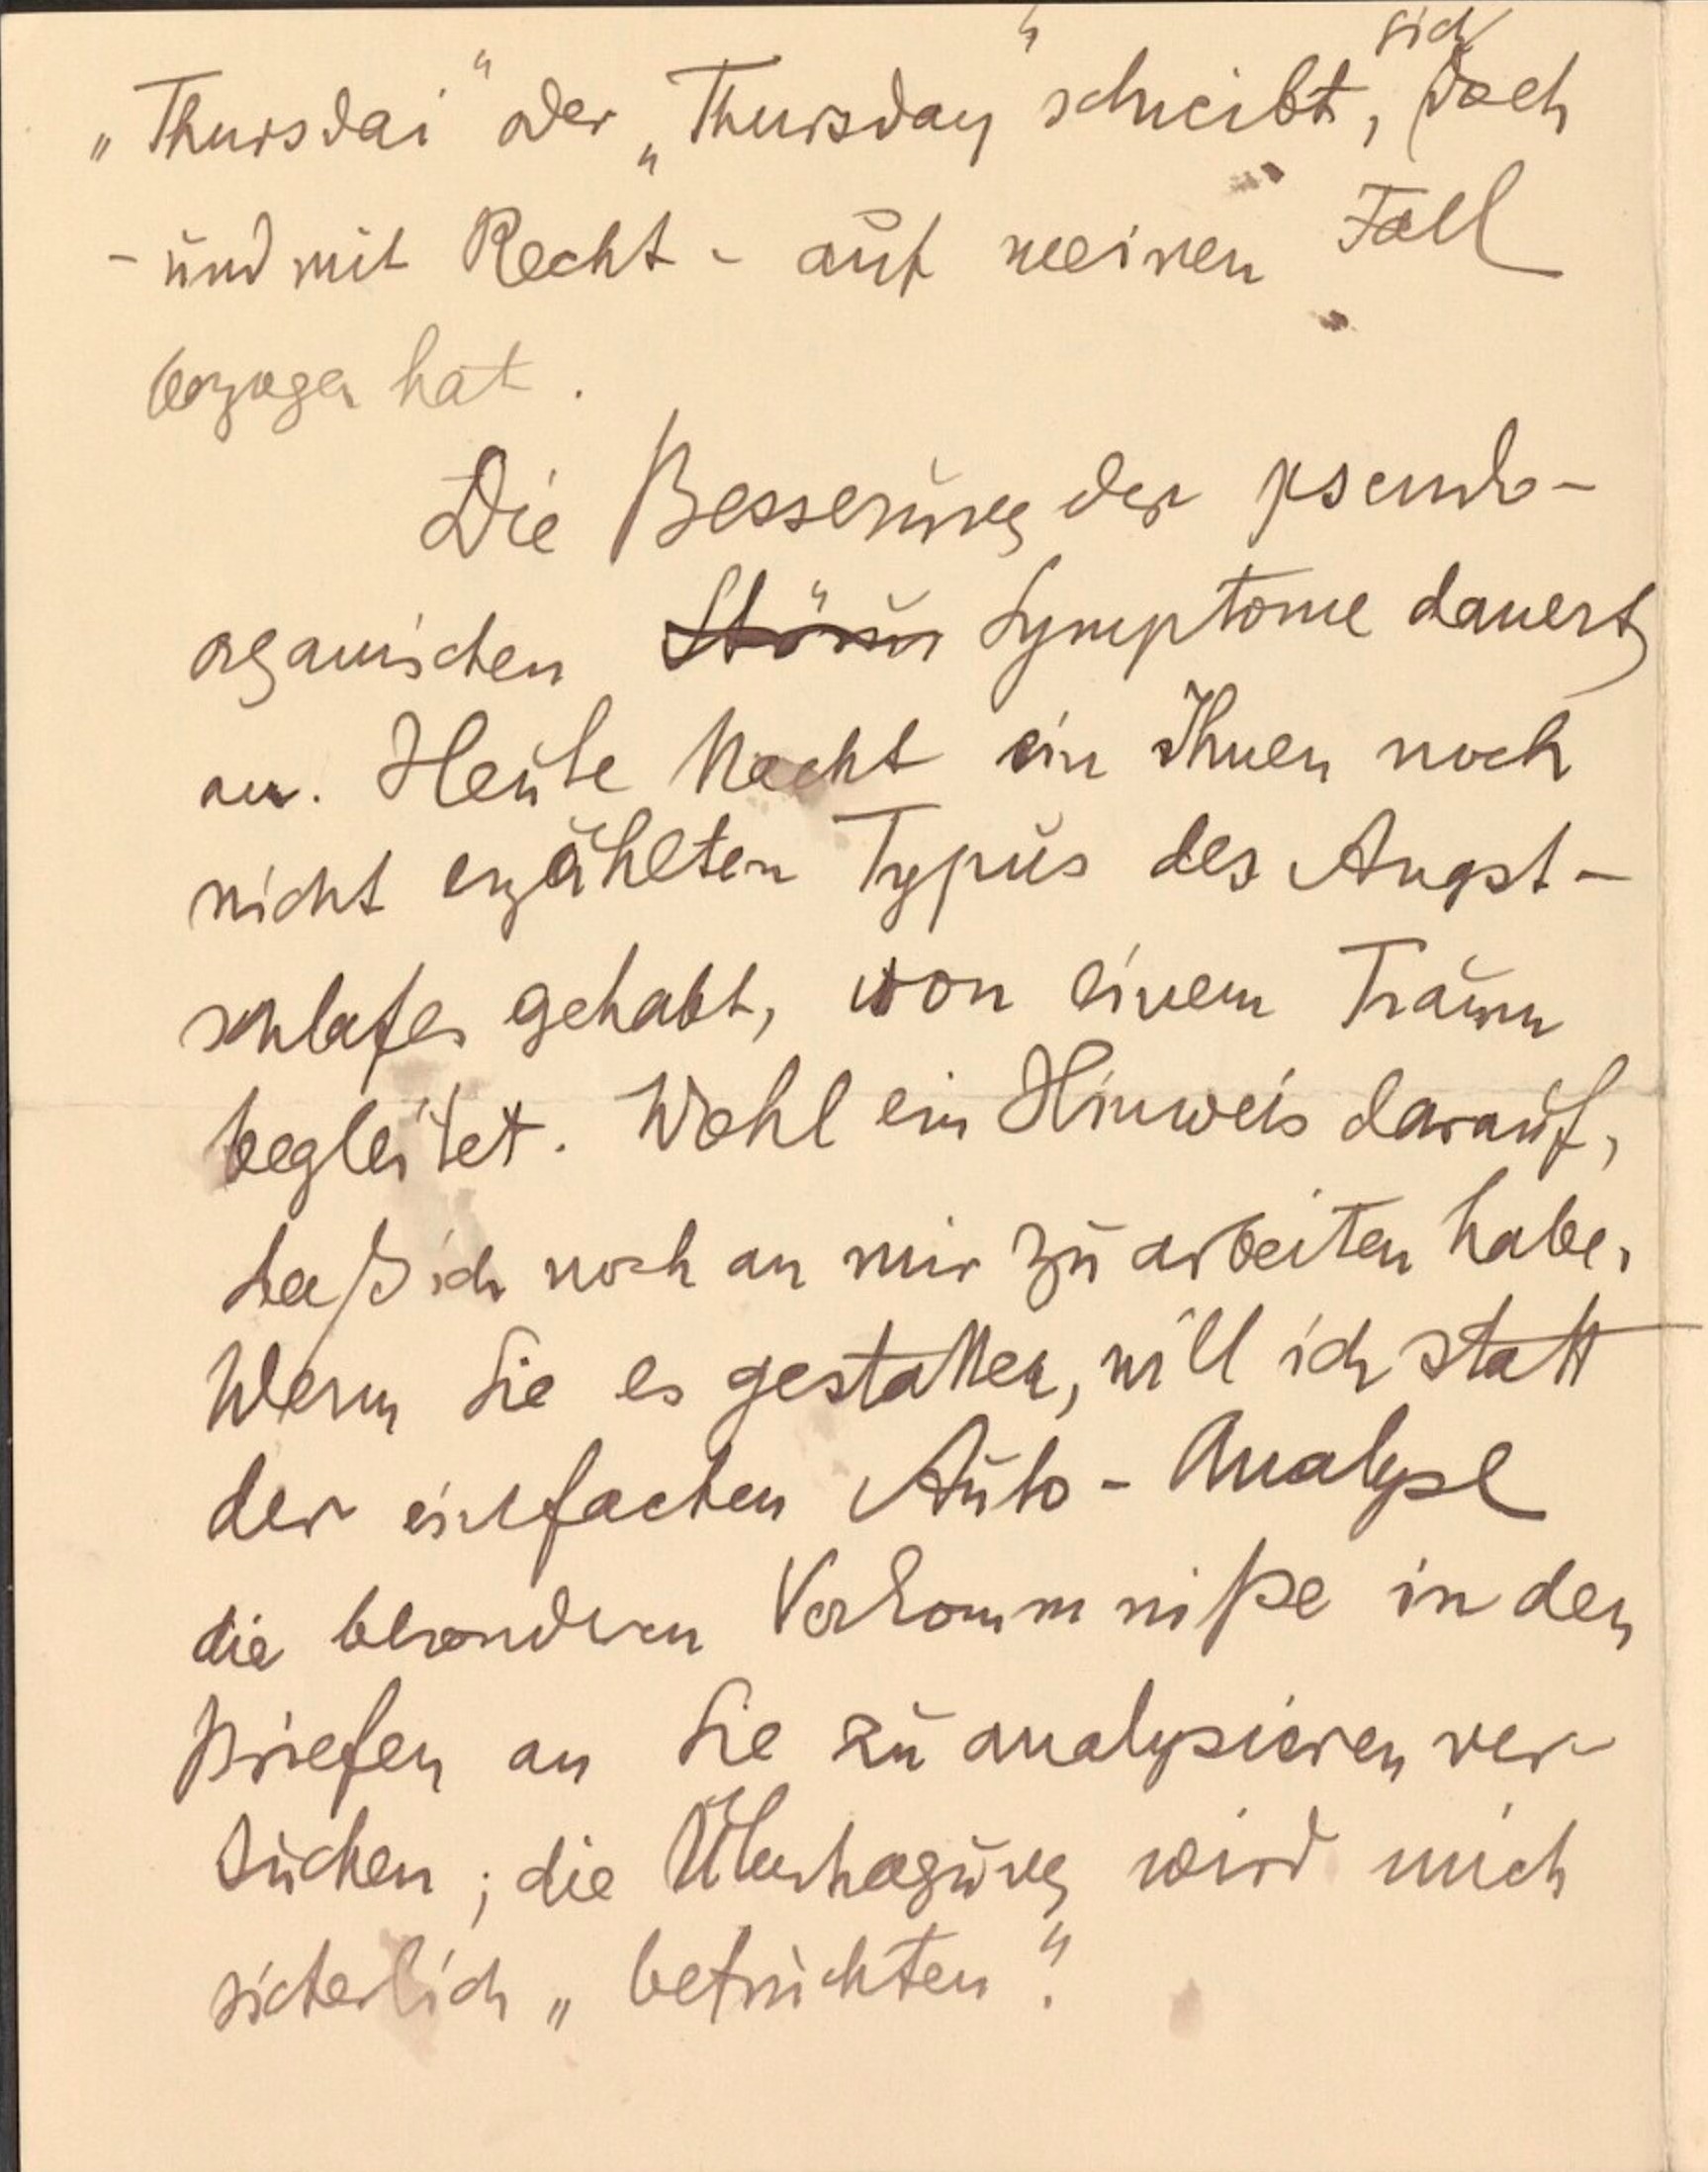 „Thursdai“ oder „Thursday“ schreibt, sich doch
- und mit Recht - auf meinen Fall
bezogen hat.
Die Besserung der pseudo-
organischen Störun Symptome dauert
an. Heute Nacht ein Ihnen noch
nicht erzählten Typus des Angst-
schlafes gehabt, von einem Traum
begleitet. Wohl ein Hinweis darauf,
daß ich noch an mir zu arbeiten habe.
Wenn Sie es gestatten, will ich statt
der einfachen Auto-Analyse
die besonderen Vorkommniße in den
Briefen an Sie zu analysieren ver-
suchen; die Übertragung wird mich
sicherlich „befruchten“.